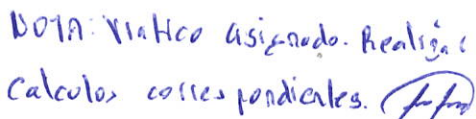 NOTA: Viatico asignado. Realizar
Calculos correspondientes.